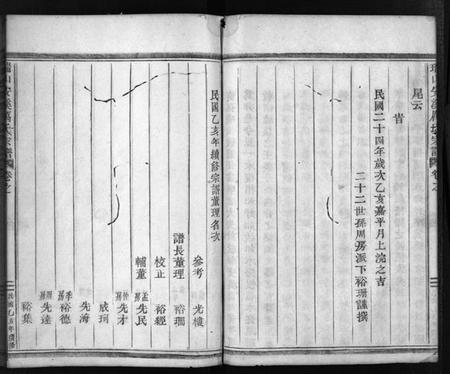 尾云
旹
民國二十四年歲次乙亥嘉平月上浣之吉
二十二世孫周房派下裕珊謹撰
民國乙亥年續修宗譜董理名次
參考 光樓
譜長董理 裕珊
校正 裕經
輔董 先民
先才
成珂
先海
裕德
先達
裕集